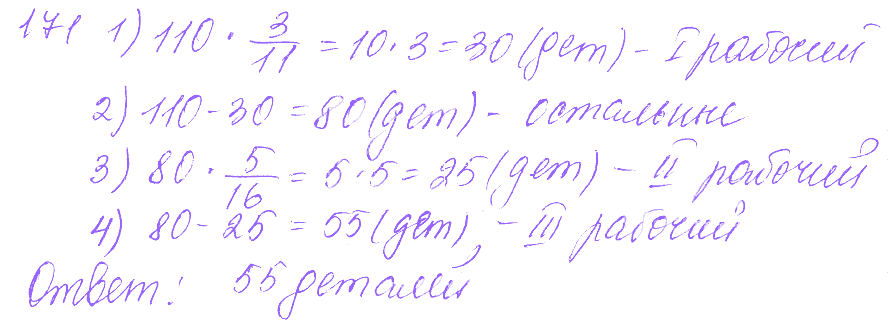 171 1) 110 · 3/11 = 10 · 3 = 30 (дет) - I рабочий
2) 110 - 30 = 80 (дет) - остальные
3) 80 · 5/16 = 5 · 5 = 25 (дет) - II рабочий
4) 80 - 25 = 55 (дет) - III рабочий
Ответ: 55 деталей